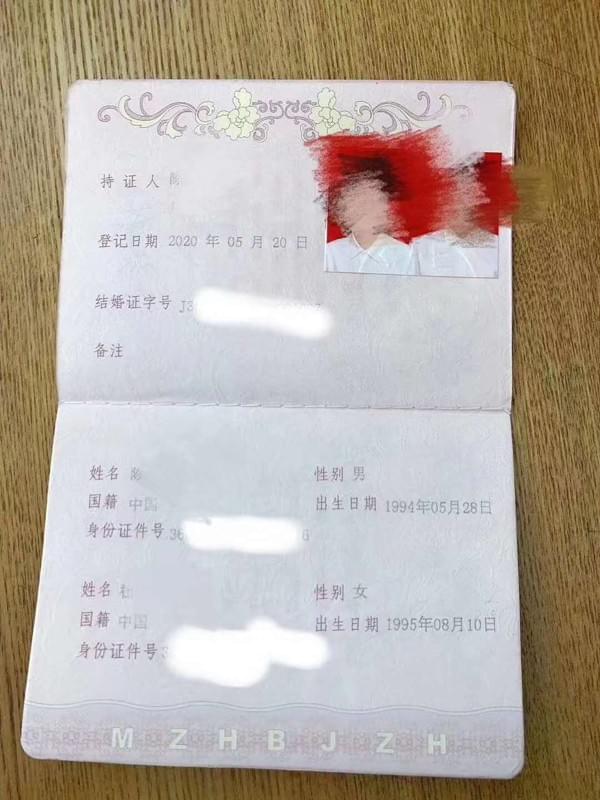 持证人 陈
登记日期 2020 年 05 月 20 日
结婚证字号 J3
备注
姓名 陈 性别 男
国籍 中国 出生日期 1994年05月28日
身份证件号 36 6
姓名 杜 性别 女
国籍 中国 出生日期 1995年08月10日
身份证件号 3
MZHBJZH